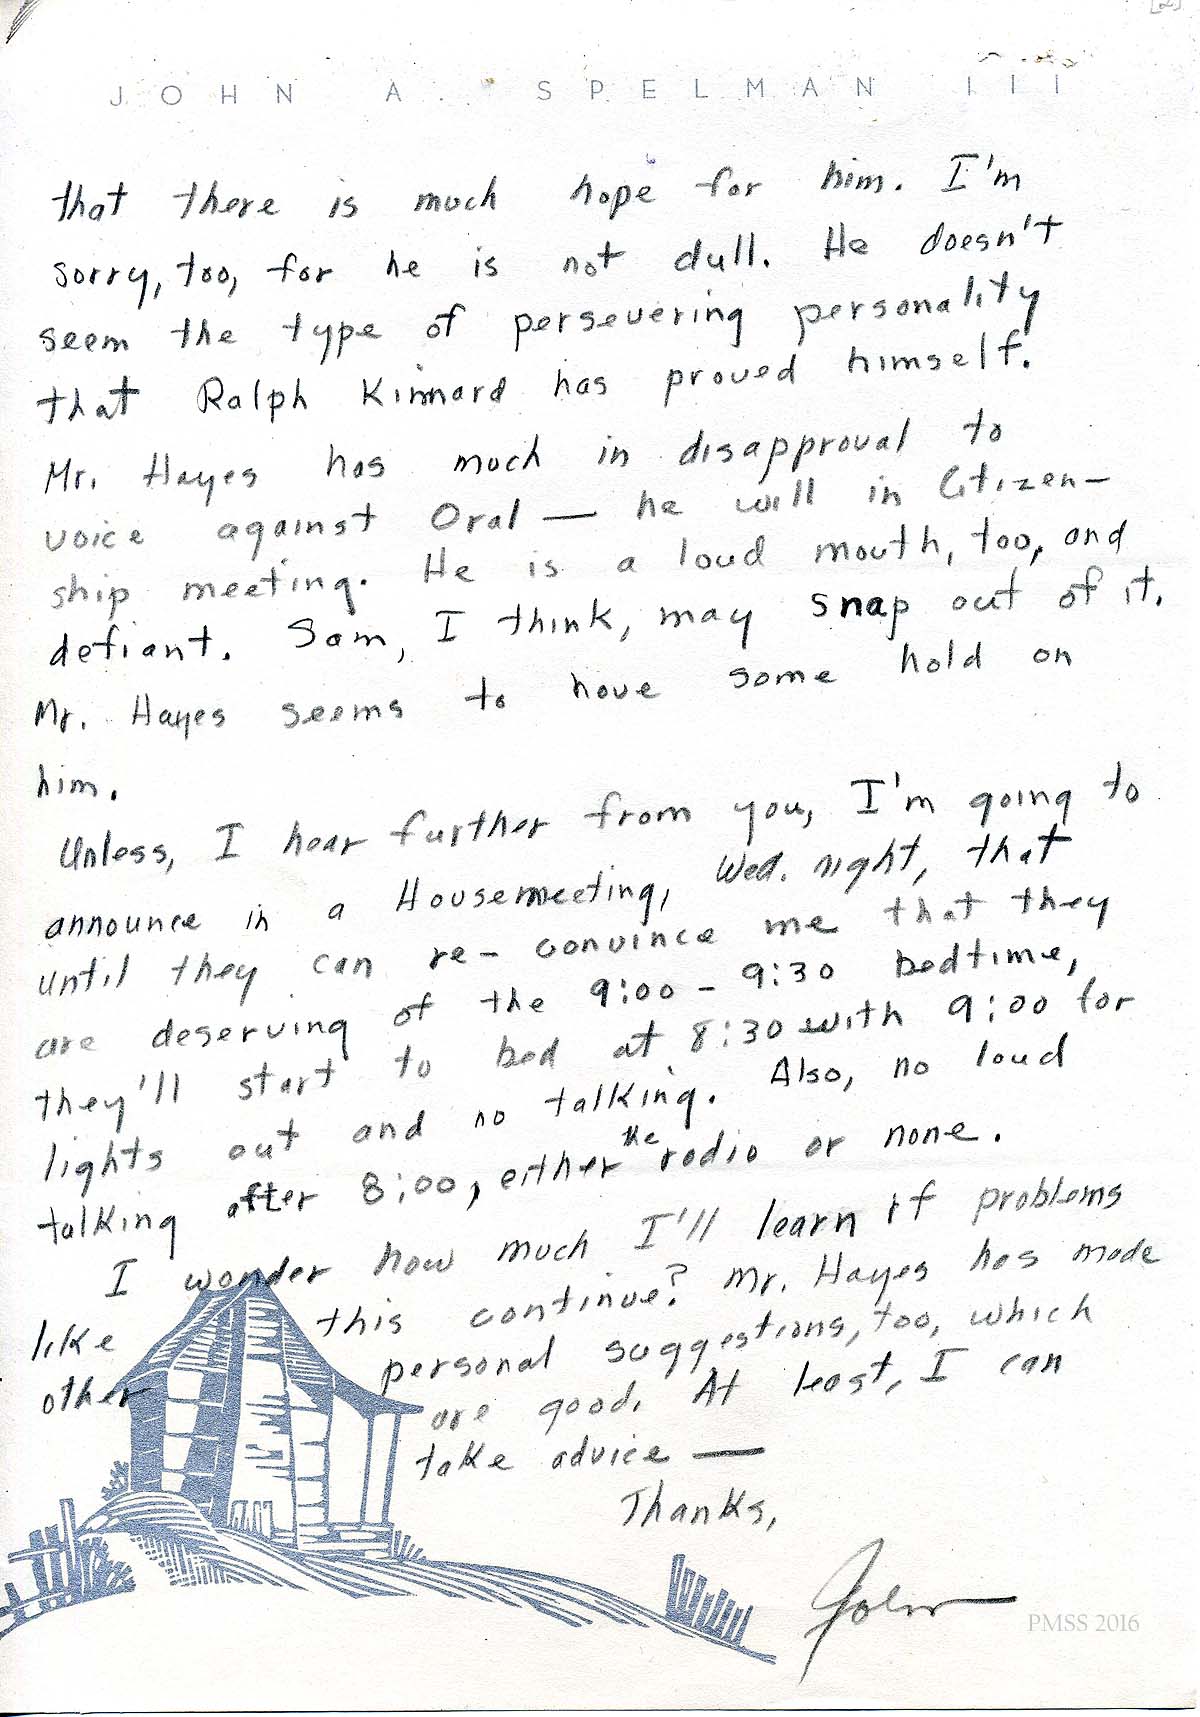 [2]
JOHN A. SPELMAN III
that there is much hope for him. I'm
sorry, too, for he is not dull. He doesn't
seem the type of persevering personality
that Ralph Kinnard has proved himself.
Mr. Hayes has much in disapproval to
voice against Oral — he will in Citizen-
ship meeting. He is a loud mouth, too, and
defiant. Sam, I think, may snap out of it.
Mr. Hayes seems to have some hold on
him.
Unless, I hear further from you, I'm going to
announce in a Housemeeting, Wed. night, that
until they can re-convince me that they
are deserving of the 9:00 - 9:30 bedtime,
they'll start to bed at 8:30 with 9:00 for
lights out and no talking. Also, no loud
talking after 8:00, either the radio or none.
I wonder how much I'll learn if problems
like this continue? Mr. Hayes has made
other personal suggestions, too, which
are good. At least, I can
take advice —
Thanks,
John
PMSS 2016